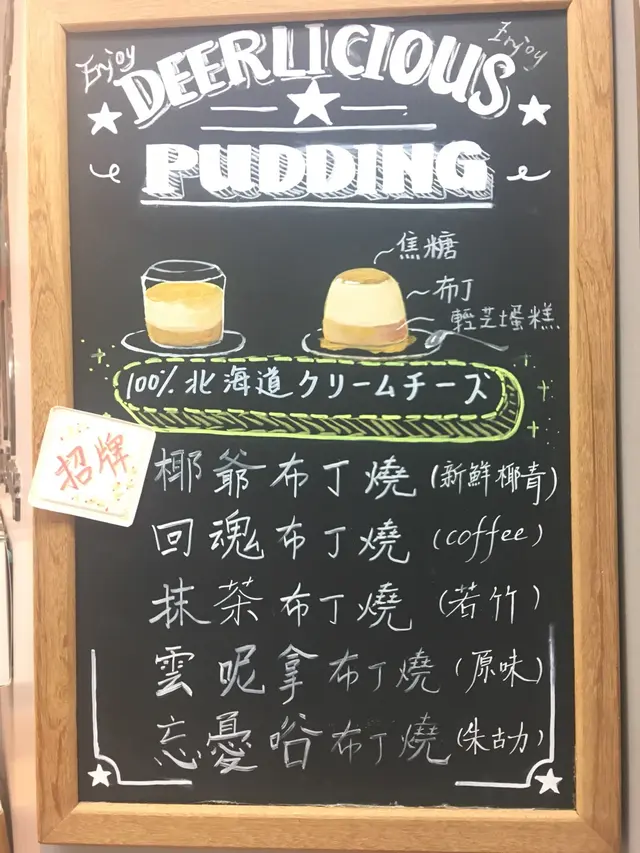 Enjoy
Enjoy
DEERLICIOUS
PUDDING
焦糖
布丁
輕芝士蛋糕
100% 北海道クリームチーズ
招牌
椰爺布丁燒 (新鮮椰青)
回魂布丁燒 (coffee)
抹茶布丁燒 (若竹)
雲呢拿布丁燒 (原味)
忘憂谷布丁燒 (朱古力)